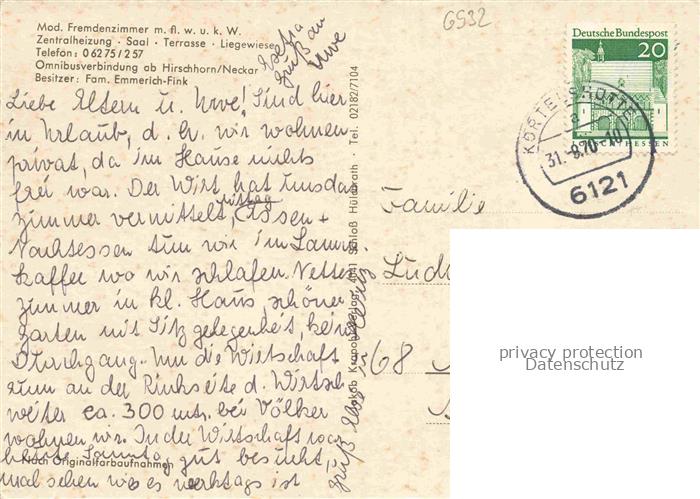 6932
Mod. Fremdenzimmer m. fl. w. u. k. W.
Zentralheizung · Saal · Terrasse · Liegewiese
Telefon: 0 62 75 / 2 57
Omnibusverbindung ab Hirschhorn/Neckar
Besitzer: Fam. Emmerich-Fink
Extra
Gruß an
Uwe
Liebe Eltern u. Uwe! Sind hier
in Urlaub, d. h. wir wohnen
privat, da im Hause nichts
frei war. Der Wirt hat uns das
Zimmer vermittelt, Essen +
Mittag
Nachtessen tun wir im
kaffee wo wir schlafen Nettes
Zimmer in kl. Haus, schöner
garten mit Sitzgelegenheit, kein
Durchgang. Um die Wirtschaft
rum an der Rückseite d. Wirtsch.
weiter ca. 300 mtr. bei Völker
wohnen wir. In der Wirtschaft war
Sonntag gut besucht,
mal sehen wie es werktags ist
Nach Originalfarbaufnahmen
Gruß
Jakob Krapohl-Verlag · 4041 Schloß Hülchrath · Tel. 02182/7104
Deutsche Bundespost
20
HESSEN
KORTELSHÜTTE
a
31.8.70-10
6121
Familie
Lud
68
privacy protection
Datenschutz